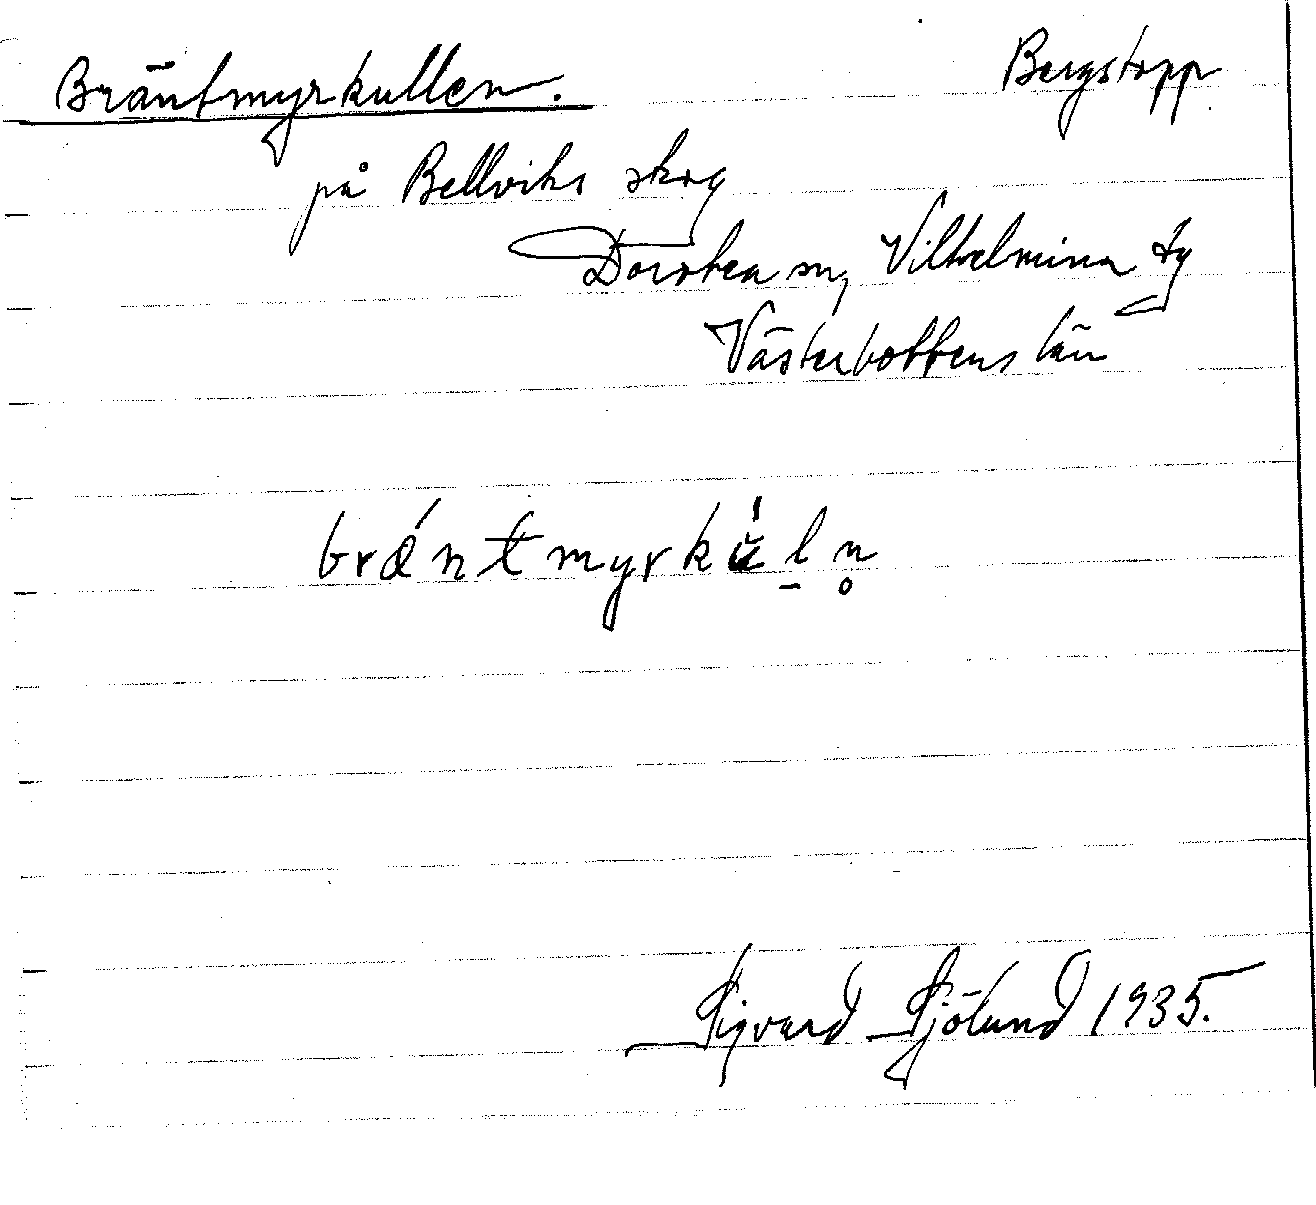 Bräntmyrkullen. Bergstopp
på Bellviks skog
Dorotea sn, Vilhelmina tg
Västerbottens län
brǽntmyrkúl̠n̥
Sigvard Sjölund 1935.